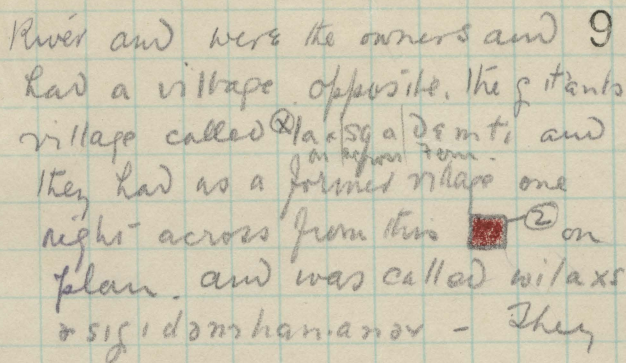 River and were the owners and 9
had a village opposite. The gitants
village called and
on across from.
they had as a former village one
right across from this 2 on
plan. and was called wilaxs
They